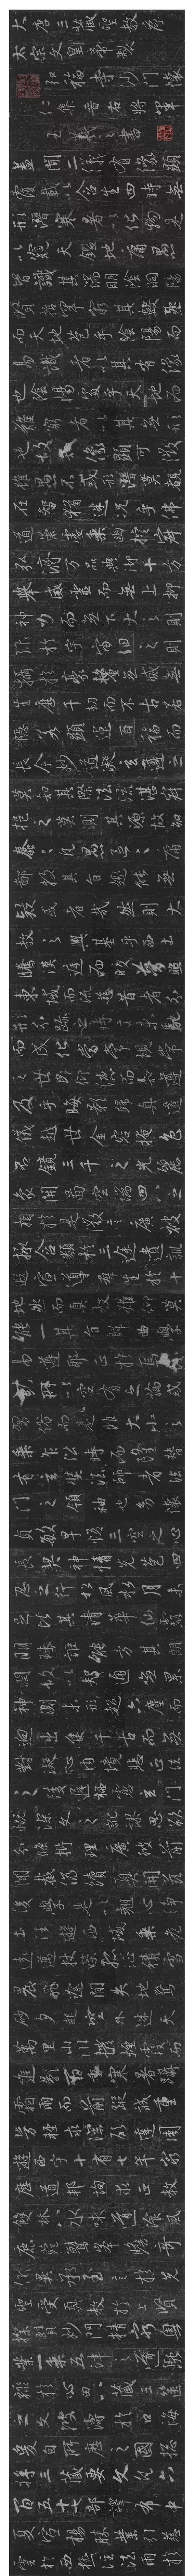 大唐三藏聖教序
太宗文皇帝製
弘福寺沙門懷
仁集晉右將軍
王羲之書
蓋聞二儀有像顯
覆載以含生四時無
形潛寒暑以化物是
以窺天鑑地庸愚
皆識其端明陰洞陽
賢哲罕窮其數然
而天地苞乎陰陽而
易識者以其有像
也陰陽處乎天地而
難窮者以其無形
也故知像顯可徵
雖愚不惑形潛莫覩
在智猶迷況乎佛
道崇虛乘幽控寂
弘濟萬品典御十方
舉威靈而無上抑
神力而無下大之則
彌於宇宙細之則
攝於豪釐無滅無
生歷千劫而不古若
隱若顯運百福而
長今妙道凝玄遵之
莫知其際法流湛寂
挹之莫測其源故知
蠢蠢凡愚區區庸
鄙投其旨趣能無
疑或者哉然則大
教之興基乎西土
騰漢庭而皎夢照
東域而流慈昔者分
形分跡之時言未馳
而成化當常現常
之世民仰德而知遵
及乎晦影歸真遷
儀越世金容掩色
不鏡三千之光麗
象開圖空端四八之
相於是微言廣被
拯含類於三途遺訓
遐宣導群生於十
地然而真教難仰莫
能一其旨歸曲學
易遵耶正於焉
紛糺所以空有之論或
習俗而是非大小之
乘乍沿時而隆替
有玄奘法師者法
門之領袖也幼懷
貞敏早悟三空之心
長契神情先苞四
忍之行松風水月未
足比其清華仙露
明珠詎能方其朗
潤故以智通無累
神測未形超六塵而
迥出隻千古而無
對凝心內境悲正法
之陵遲栖慮玄門
慨深文之訛謬思欲
分條析理廣彼前
聞截偽續真開茲
後學是以翹心淨
土往遊西域乘危
遠邁杖策孤征積雪
晨飛途間失地驚
砂夕起空外迷天
萬里山川撥煙霞而
進影百重寒暑躡
霜雨而前蹤誠重
勞輕求深願達周
遊西宇十有七年窮
歷道邦詢求正教
雙林八水味道餐風
鹿菀鷲峯瞻奇
仰異承至言於先
聖受真教於上賢
探賾妙門精窮奧
業一乘五律之道馳
驟於心田八藏三篋
之文波濤於口海
爰自所歷之國總
將三藏要文凡六
百五十七部譯布中
夏宣揚勝業引慈
雲於西極注法雨